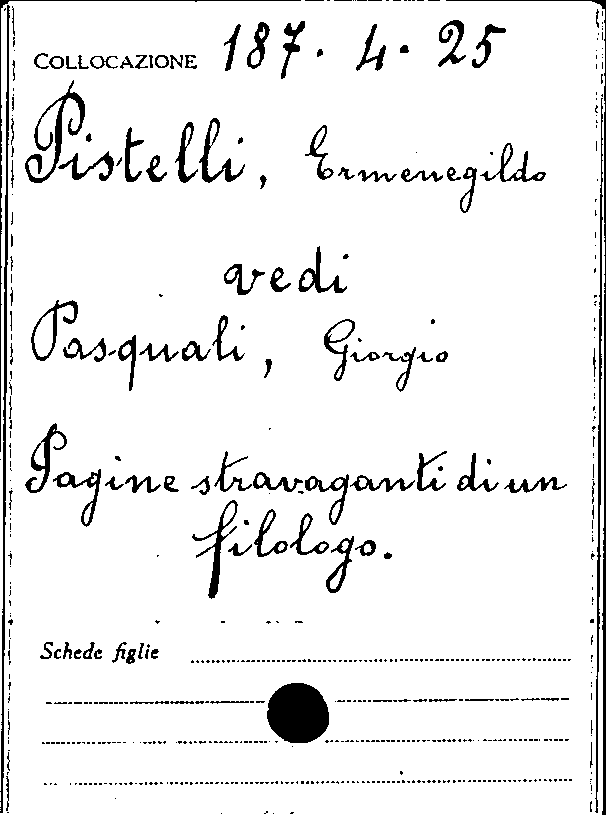 COLLOCAZIONE 187. 4. 25
Pistelli, Ermenegildo
vedi
Pasquali, Giorgio
Pagine stravaganti di un
filologo.
Schede figlie